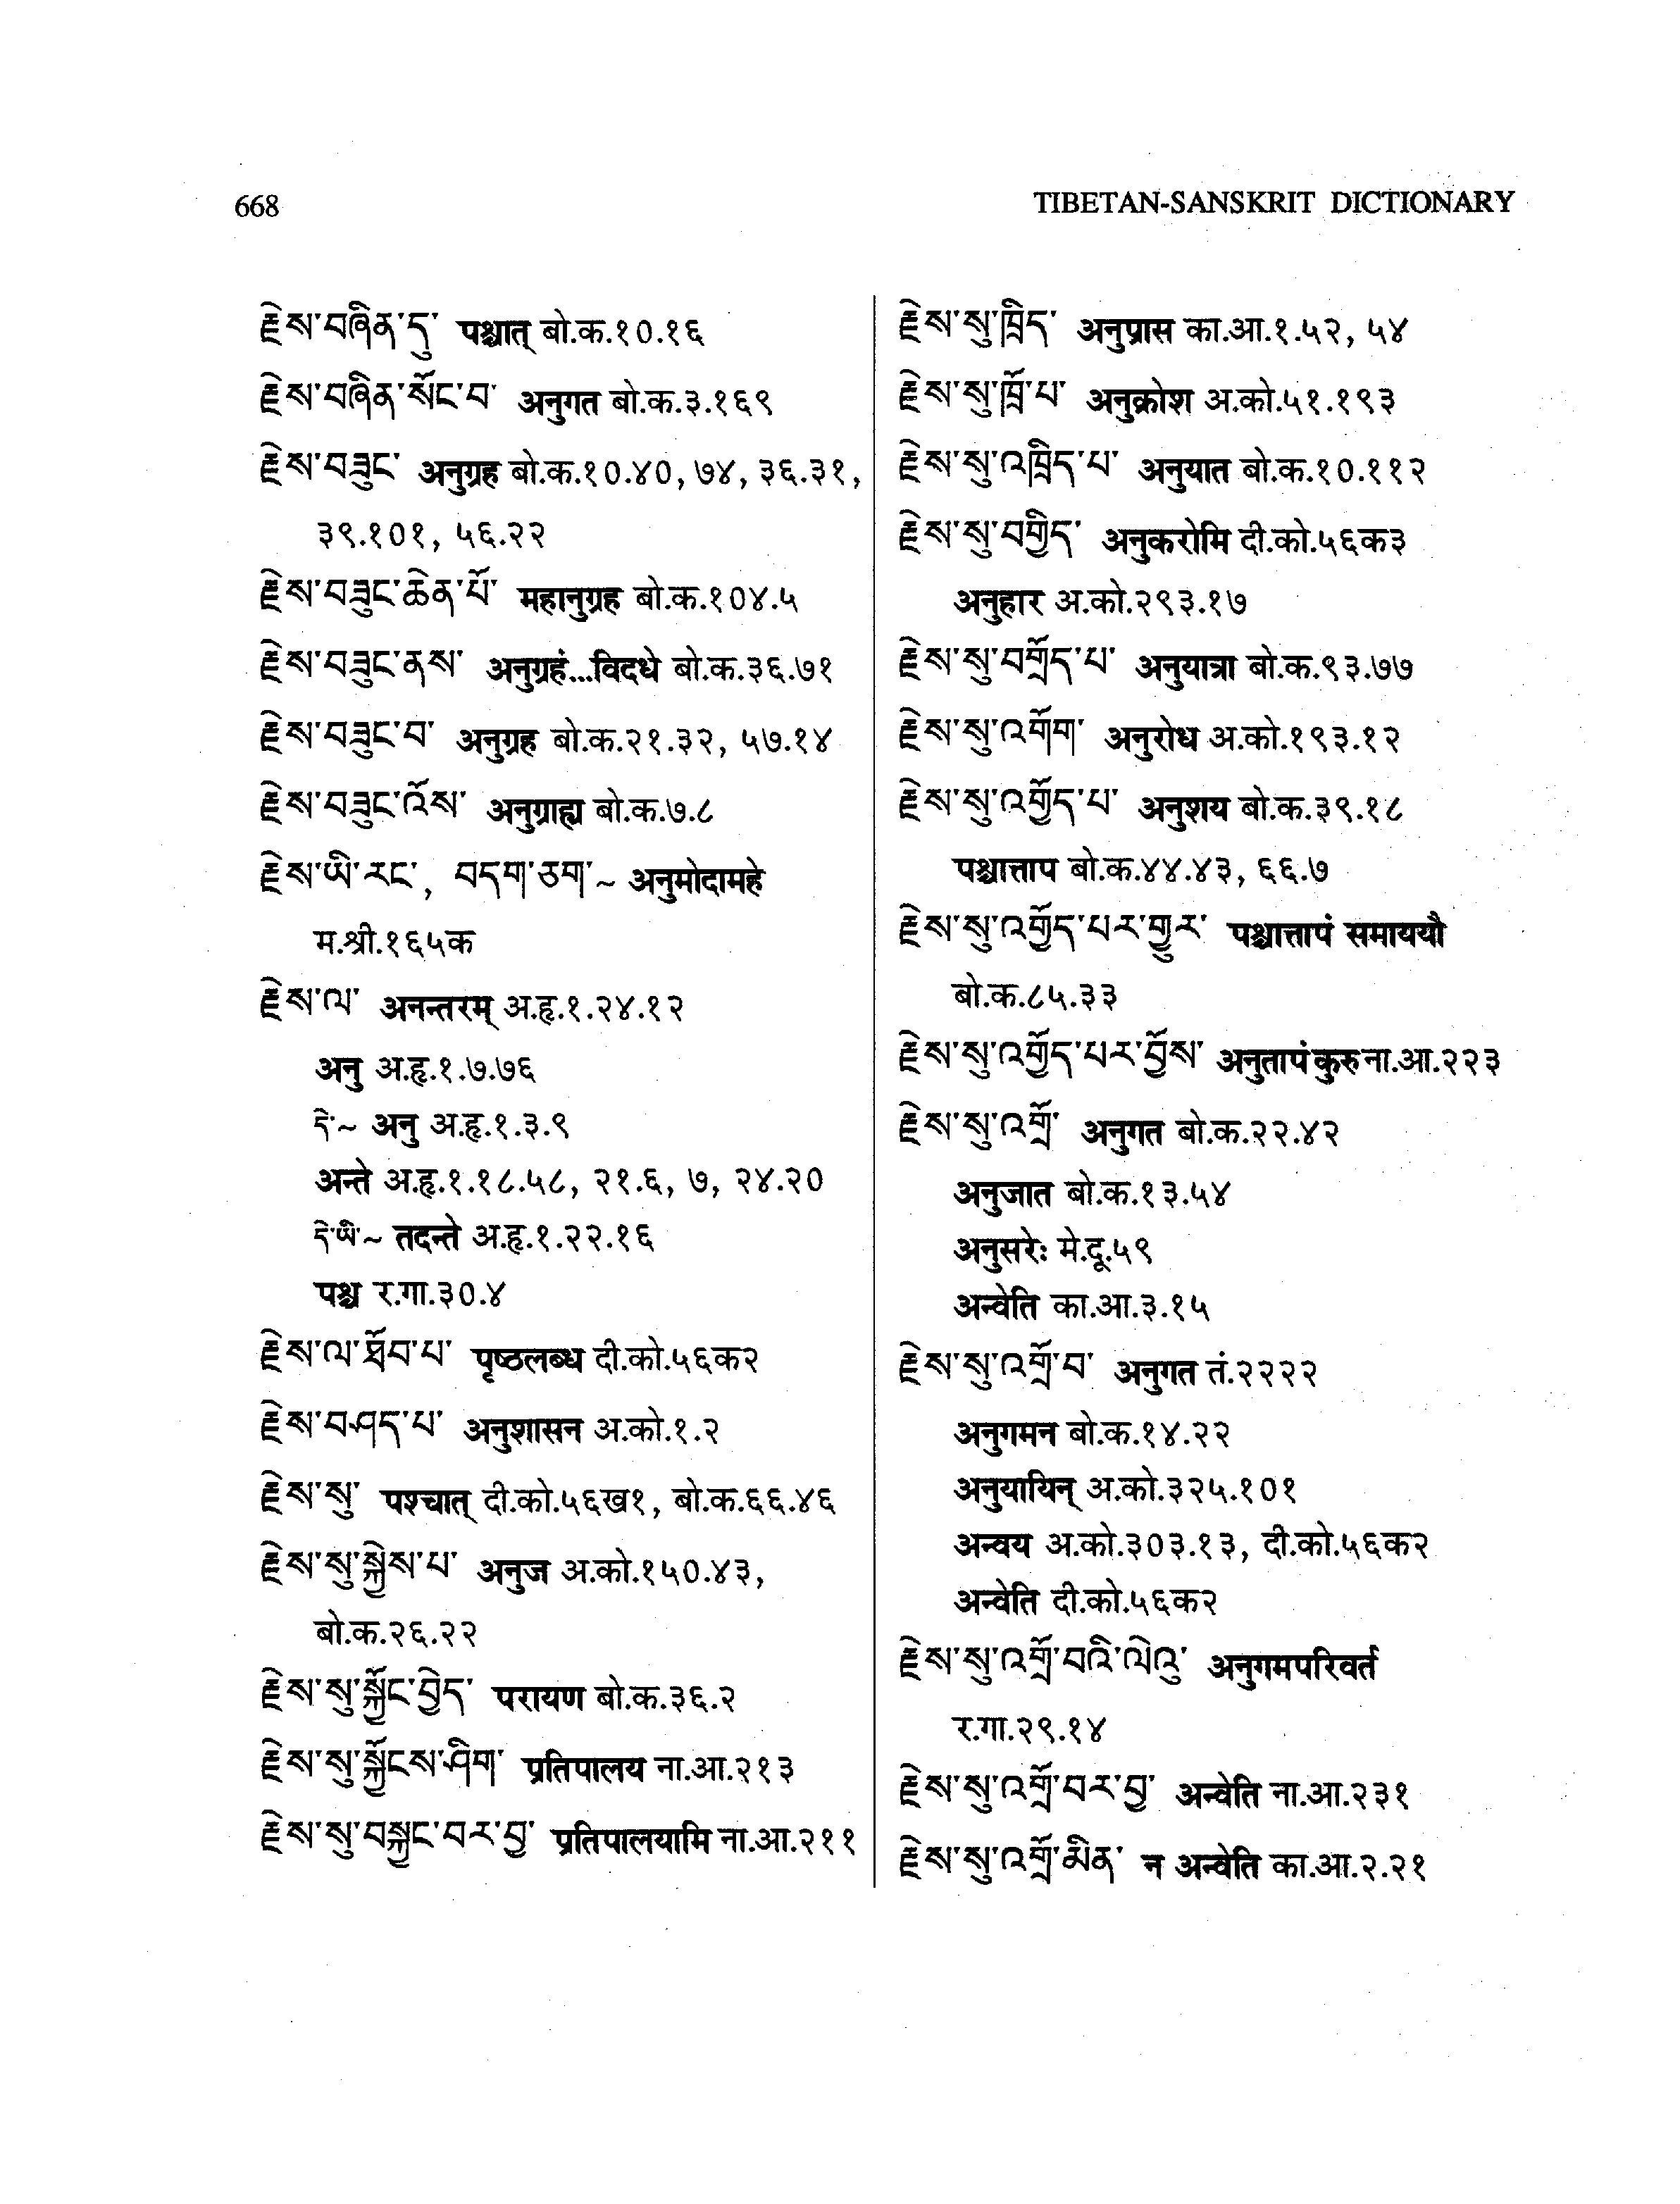 668
TIBETAN-SANSKRIT DICTIONARY
རྗེས་བཞིན་དུ་ पश्चात् बो.क.१०.१६
རྗེས་བཞིན་སོང་བ་ अनुगत बो.क.३.१६९
རྗེས་བཟུང་ अनुग्रह बो.क.१०.४०, ७४, ३६.३१,
३९.१०१, ५६.२२
རྗེས་བཟུང་ཆེན་པོ་ महानुग्रह बो.क.१०४.५
རྗེས་བཟུང་ནས་ अनुग्रहं...विदधे बो.क.३६.७१
རྗེས་བཟུང་བ་ अनुग्रह बो.क.२१.३२, ५७.१४
རྗེས་བཟུང་འོས་ अनुग्राह्य बो.क.७.८
རྗེས་ཡི་རང་, བདག་ཅག་~ अनुमोदामहे
म.श्री.१६५क
རྗེས་ལ་ अनन्तरम् अ.हृ.१.२४.१२
अनु अ.हृ.१.७.७६
དེ་~ अनु अ.हृ.१.३.९
अन्ते अ.हृ.१.१८.५८, २१.६, ७, २४.२०
དེ་ཡི་~ तदन्ते अ.हृ.१.२२.१६
पश्च र.गा.३०.४
རྗེས་ལ་ཐོབ་པ་ पृष्ठलब्ध दी.को.५६क२
རྗེས་བཤད་པ་ अनुशासन अ.को.१.२
རྗེས་སུ་ पश्चात् दी.को.५६ख१, बो.क.६६.४६
རྗེས་སུ་སྐྱེས་པ་ अनुज अ.को.१५०.४३,
बो.क.२६.२२
རྗེས་སུ་སྐྱོང་བྱེད་ परायण बो.क.३६.२
རྗེས་སུ་སྐྱོངས་ཤིག་ प्रतिपालय ना.आ.२१३
རྗེས་སུ་བསྐྱང་བར་བྱ་ प्रतिपालयामि ना.आ.२११
རྗེས་སུ་ཁྲིད་ अनुप्रास का.आ.१.५२, ५४
རྗེས་སུ་ཁྲོ་པ་ अनुक्रोश अ.को.५१.१९३
རྗེས་སུ་འཁྲིད་པ་ अनुयात बो.क.१०.११२
རྗེས་སུ་བགྱིད་ अनुकरोमि दी.को.५६क३
अनुहार अ.को.२९३.१७
རྗེས་སུ་བགྲོད་པ་ अनुयात्रा बो.क.९३.७७
རྗེས་སུ་འགོག་ अनुरोध अ.को.१९३.१२
རྗེས་སུ་འགྱོད་པ་ अनुशय बो.क.३९.१८
पश्चात्ताप बो.क.४४.४३, ६६.७
རྗེས་སུ་འགྱོད་པར་གྱུར་ पश्चात्तापं समाययौ
बो.क.८५.३३
རྗེས་སུ་འགྱོད་པར་བྱོས་ अनुतापं कुरु ना.आ.२२३
རྗེས་སུ་འགྲོ་ अनुगत बो.क.२२.४२
अनुजात बो.क.१३.५४
अनुसरेः मे.दू.५९
अन्वेति का.आ.३.१५
རྗེས་སུ་འགྲོ་བ་ अनुगत तं.२२२२
अनुगमन बो.क.१४.२२
अनुयायिन् अ.को.३२५.१०१
अन्वय अ.को.३०३.१३, दी.को.५६क२
अन्वेति दी.को.५६क२
རྗེས་སུ་འགྲོ་བའི་ལེའུ་ अनुगमपरिवर्त
र.गा.२९.१४
རྗེས་སུ་འགྲོ་བར་བྱ་ अन्वेति ना.आ.२३१
རྗེས་སུ་འགྲོ་མིན་ न अन्वेति का.आ.२.२१